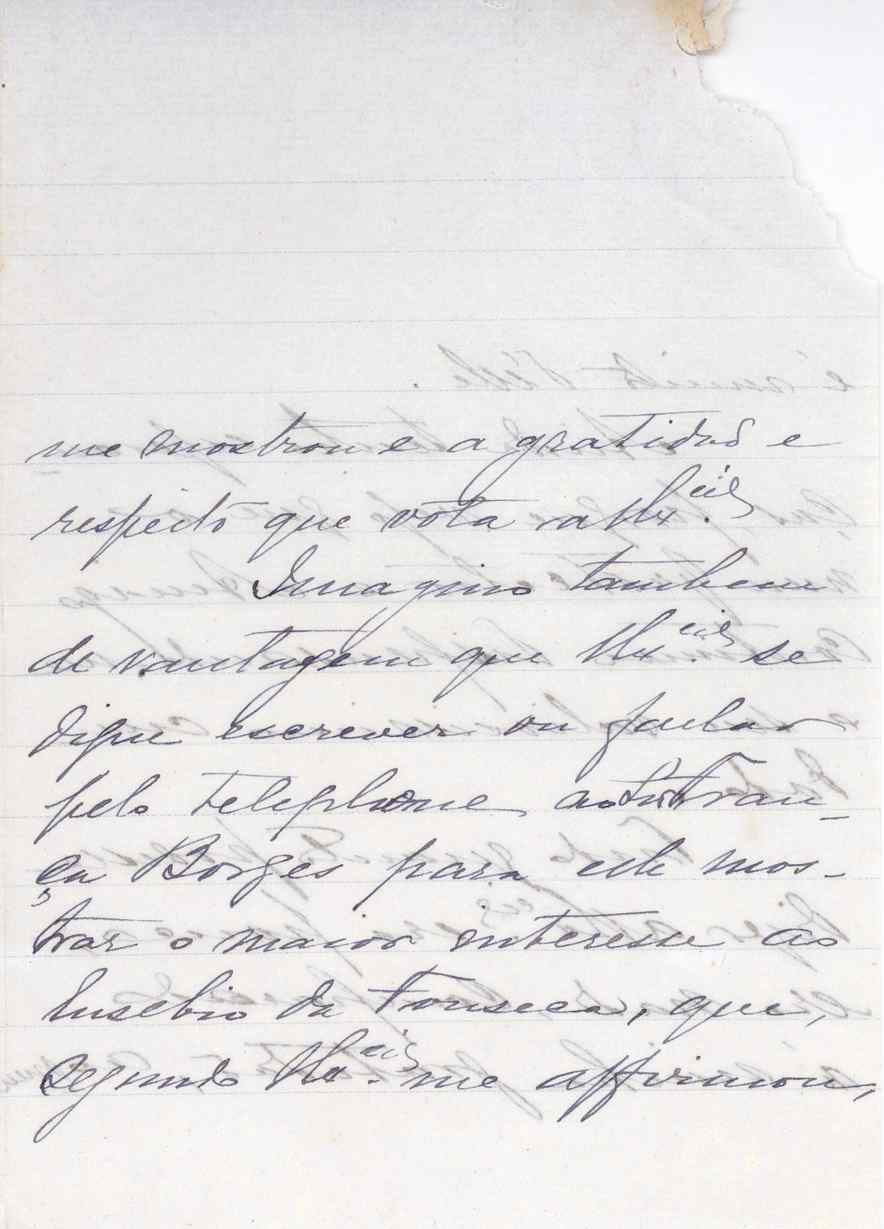 me mostrou e a gratidão e
respeito que vota a V. Ex.cia
Imagino tambem
de vantagem que V. Ex.cia se
digne escrever ou fallar
pelo telephone ao Fran-
ça Borges para elle mos-
trar o maior interesse ao
Eusebio da Fonseca, que,
segundo V. Ex.cia me affirmou,